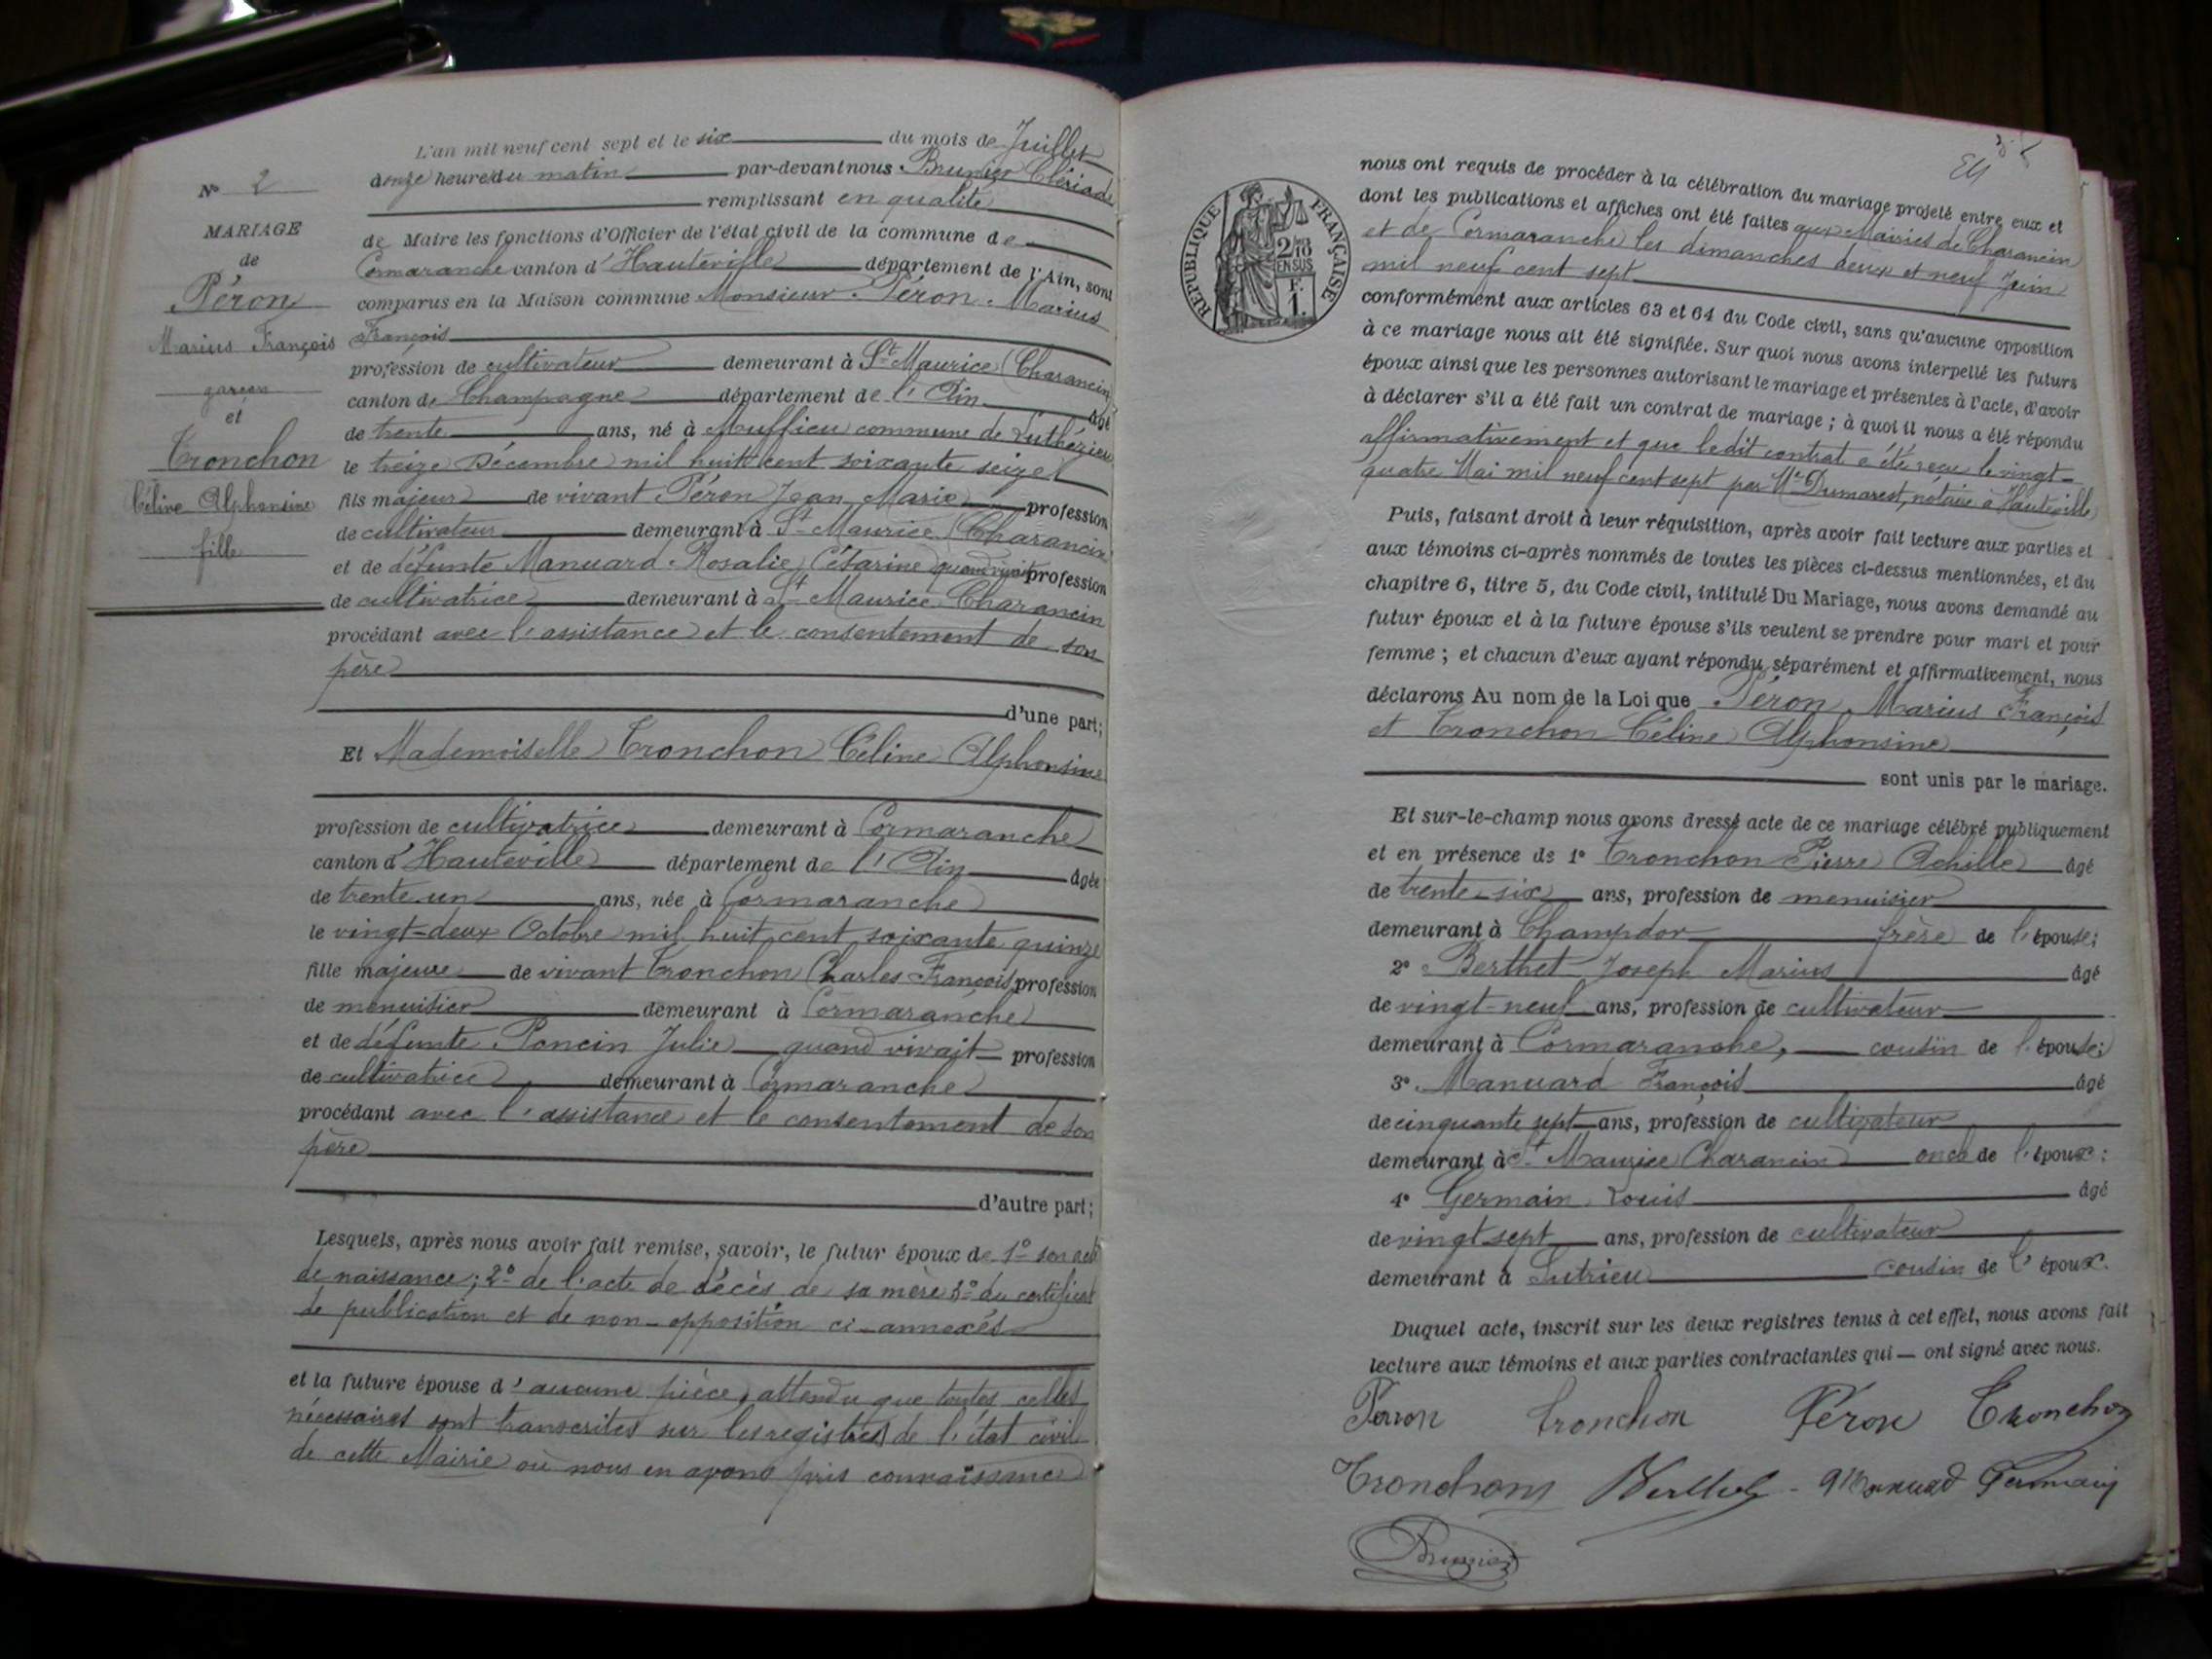 N° 2
MARIAGE
de
Péron
Marius François
garçon
et
Tronchon
Céline Alphonsine
fille
L'an mil neuf cent sept et le six du mois de Juillet
onze heures du matin par-devant nous Brunier Clériade
remplissant en qualité
de Maire les fonctions d'Officier de l'état civil de la commune de
Cormaranche canton d'Hauteville département de l'Ain, sont
comparus en la Maison commune Monsieur Péron Marius
François
profession de cultivateur demeurant à St Maurice (Charancin)
canton de Champagne département de l'Ain âgé
de trente ans, né à Muffieu commune de Luthézieu
le treize Décembre mil huit cent soixante seize
fils majeur de vivant Péron Jean Marie profession
de cultivateur demeurant à St Maurice (Charancin
et de défunte Manuard Rosalie Césarine quand vivait profession
de cultivatrice demeurant à St Maurice Charancin
procédant avec l'assistance et le consentement de son
père
d'une part;
Et Mademoiselle Tronchon Céline Alphonsine
profession de cultivatrice demeurant à Cormaranche
canton d'Hauteville département de l'Ain âgée
de trente un ans, née à Cormaranche
le vingt-deux Octobre mil huit cent soixante quinze
fille majeure de vivant Tronchon Charles François profession
de menuisier demeurant à Cormaranche
et de défunte Poncin Julie quand vivait profession
de cultivatrice demeurant à Cormaranche
procédant avec l'assistance et le consentement de son
père
d'autre part;
Lesquels, après nous avoir fait remise, savoir, le futur époux de 1° son acte
de naissance; 2° de l'acte de décès de sa mère 3° du certificat
de publication et de non-opposition ci-annexés
et la future épouse d'aucune pièce, attendu que toutes celles
nécessaires sont transcrites sur les registres de l'état civil
de cette Mairie où nous en avons pris connaissance
RÉPUBLIQUE FRANÇAISE
2/10
EN SUS
F.
1.
nous ont requis de procéder à la célébration du mariage projeté entre eux et
dont les publications et affiches ont été faites aux Mairies de Charancin
et de Cormaranche les dimanches deux et neuf Juin
mil neuf cent sept
conformément aux articles 63 et 64 du Code civil, sans qu'aucune opposition
à ce mariage nous ait été signifiée. Sur quoi nous avons interpellé les futurs
époux ainsi que les personnes autorisant le mariage et présentes à l'acte, d'avoir
à déclarer s'il a été fait un contrat de mariage; à quoi il nous a été répondu
affirmativement et que ledit contrat a été reçu le vingt-
quatre Mai mil neuf cent sept par Me Dumarest, notaire à Hauteville
Puis, faisant droit à leur réquisition, après avoir fait lecture aux parties et
aux témoins ci-après nommés de toutes les pièces ci-dessus mentionnées, et du
chapitre 6, titre 5, du Code civil, intitulé Du Mariage, nous avons demandé au
futur époux et à la future épouse s'ils veulent se prendre pour mari et pour
femme; et chacun d'eux ayant répondu séparément et affirmativement, nous
déclarons Au nom de la Loi que Péron Marius François
et Tronchon Céline Alphonsine
sont unis par le mariage.
Et sur-le-champ nous avons dressé acte de ce mariage célébré publiquement
et en présence de 1° Tronchon Pierre Achille âgé
de trente-six ans, profession de menuisier
demeurant à Champdor frère de l'épouse;
2° Berthet Joseph Marius âgé
de vingt-neuf ans, profession de cultivateur
demeurant à Cormaranche, cousin de l'épouse;
3° Manuard François âgé
de cinquante sept ans, profession de cultivateur
demeurant à St Maurice Charancin oncle de l'époux;
4° Germain Louis âgé
de vingt sept ans, profession de cultivateur
demeurant à Sutrieu cousin de l'époux.
Duquel acte, inscrit sur les deux registres tenus à cet effet, nous avons fait
lecture aux témoins et aux parties contractantes qui — ont signé avec nous.
Péron Tronchon Péron Tronchon
Tronchon Berthet Manuard Germain
Brunier